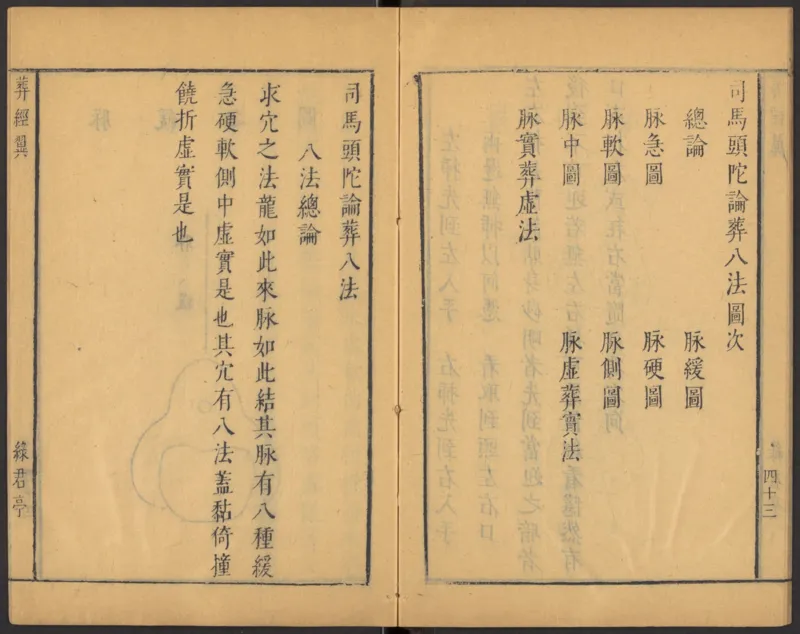 司馬頭陀論葬八法圖次
總論
脉緩圖
脉急圖
脉硬圖
脉軟圖
脉側圖
脉中圖
脉虛葬實法
脉實葬虛法
四十三
司馬頭陀論葬八法
八法總論
求穴之法龍如此來脉如此結其脉有八種緩
急硬軟側中虛實是也其穴有八法蓋黏倚撞
饒折虛實是也
葬經翼
綠君亭